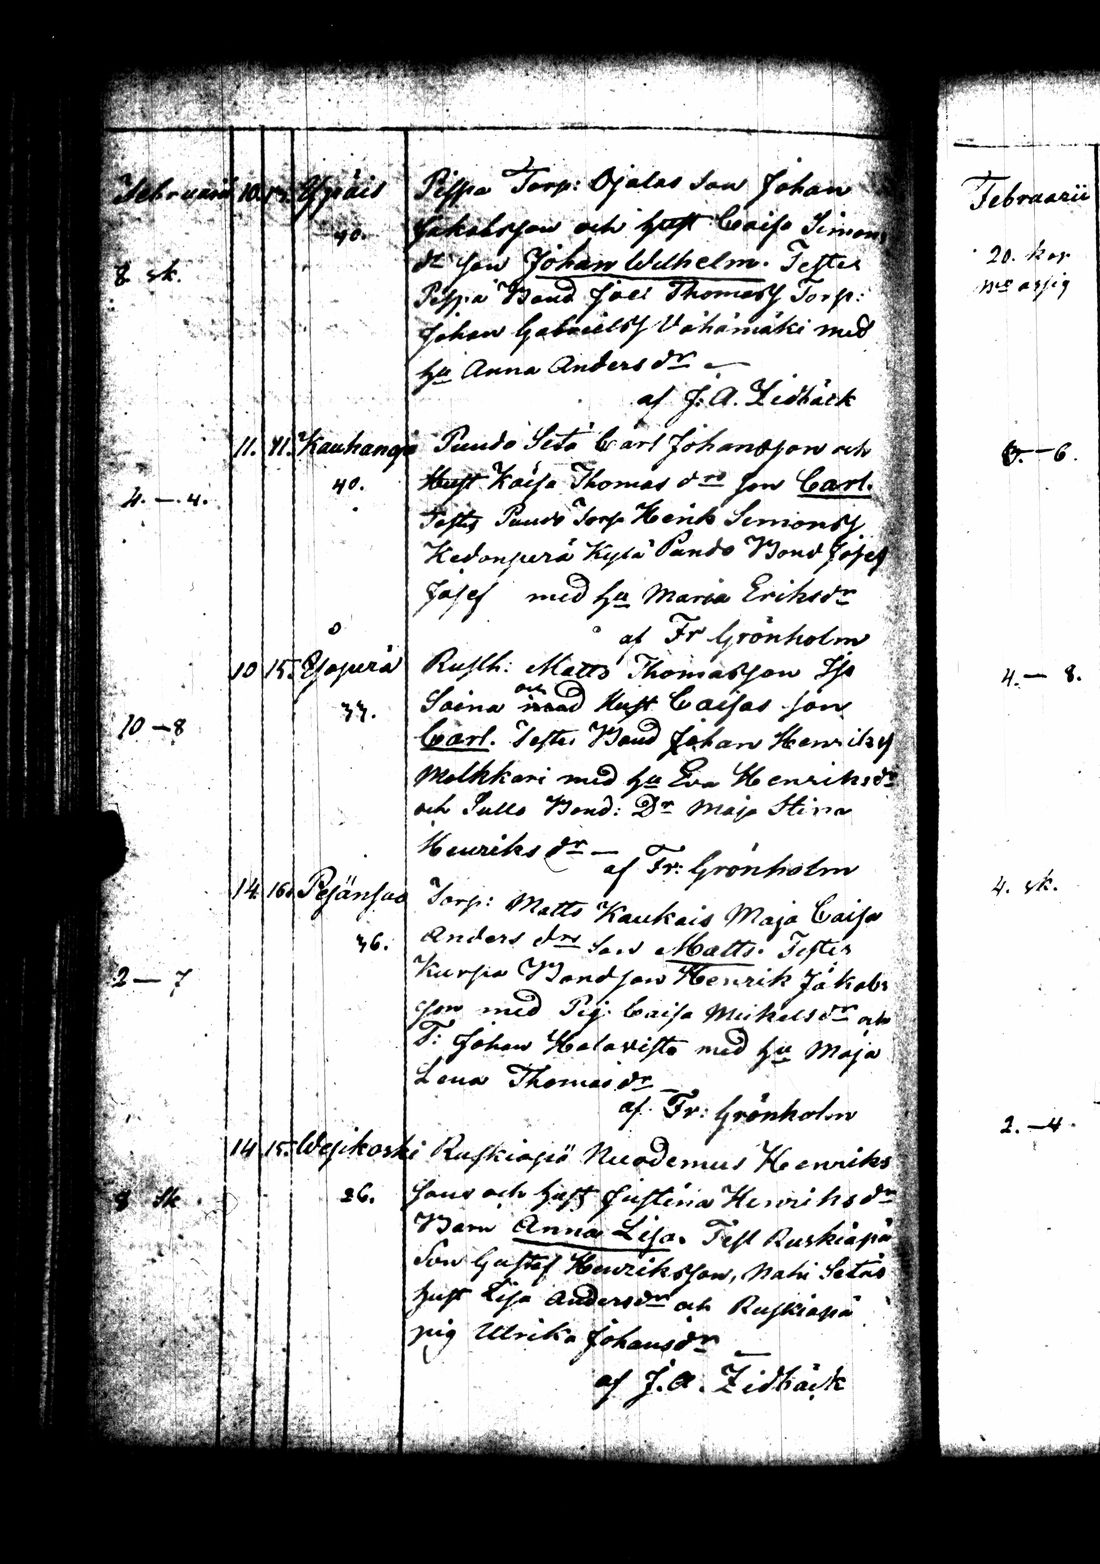 Februarii 10. 13. Ypäis Pispa Torp: Ojalas Son Johan
40. Jakobsson och Hust Caisa Simons
8 sk. dr Son Johan Wilhelm. Testes
Pispa Bond Joel Thomass Torp:
Johan Gabrielss Vähämäki med
hu Anna Anders dr
af J. A. Zidbäck
11. 11. Kauhanoja Puudo Setä Carl Johansson och
40. Hust Kaisa Thomas drs Son Carl.
4. — 4. Testes Torp Henrik Simonss
Kylä Bond Josef
Josef med hu Maria Eriksdr
af Fr Grönholm
10 15. Ojaperä Rusth: Matts Thomasson
33. och Hust Caisas Son
10 — 8 Carl. Testes Bond Johan Henrikss
med hu Eva Henriksdr
och Bond: Dr Maja Stina
Henriks dr —
af Fr: Grönholm
14. 16. Pesänsuo Torp: Matts Kaukais Maja Caisa
36. Anders drs Son Matts. Testes
2 — 7 Kurpa Bondson Henrik Jakobs
son med Pig: Caisa Mickelsdr och
T: Johan Halavisto med hu Maja
Lena Thomasdr
af Fr: Grönholm
14 15. Wesikoski Ruskiapä Nicodemus Henriks
26. sons och hust Justina Henriksdr
8 sk Barn Anna Lisa. Test Ruskiapä
Son Gustaf Henriksson, Nahi Setäs
hust Lisa Andersdr och Ruskiapä
pig Ulrika Johansdr
af J. A. Zidbäck
Februarii
20. kop
4. — 8.
4. sk.
2. — 4